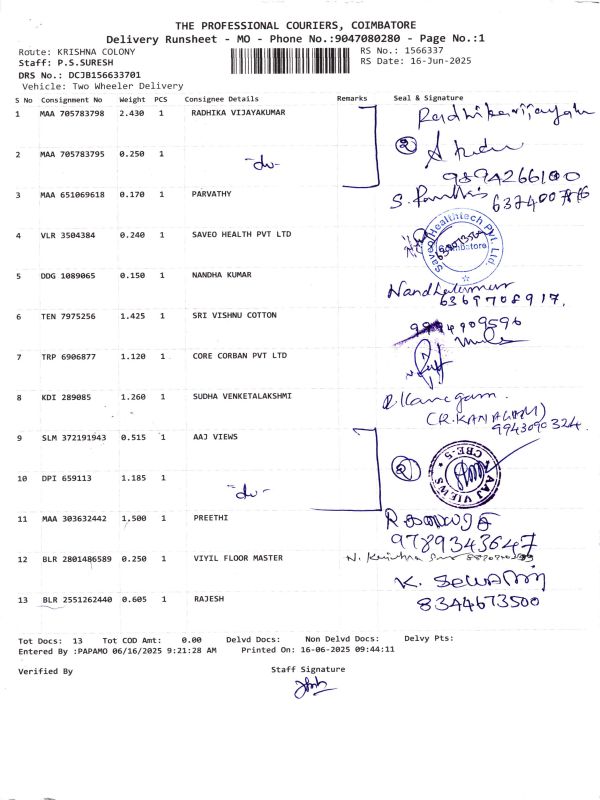 THE PROFESSIONAL COURIERS, COIMBATORE
Delivery Runsheet - MO - Phone No.:9047080280 - Page No.:1
Route: KRISHNA COLONY RS No.: 1566337
Staff: P.S.SURESH RS Date: 16-Jun-2025
DRS No.: DCJB156633701
Vehicle: Two Wheeler Delivery
S No Consignment No Weight PCS Consignee Details Remarks Seal & Signature
1 MAA 705783798 2.430 1 RADHIKA VIJAYAKUMAR Radhikavijayak
2 MAA 705783795 0.250 1 -do- ②
9894266100
3 MAA 651069618 0.170 1 PARVATHY S.
4 VLR 3504384 0.240 1 SAVEO HEALTH PVT LTD Saveo Healthtech Pvt. Ltd. Coimbatore
5 DDG 1089065 0.150 1 NANDHA KUMAR Nandhakumar
6369708917.
6 TEN 7975256 1.425 1 SRI VISHNU COTTON
7 TRP 6906877 1.120 1 CORE CORBAN PVT LTD
8 KDI 289085 1.260 1 SUDHA VENKETALAKSHMI R Kanagam.
(R.KANAGAM)
9943090324.
9 SLM 372191943 0.515 1 AAJ VIEWS AAJ VIEWS CBE-5
10 DPI 659113 1.185 1 -do- ②
11 MAA 303632442 1.500 1 PREETHI
9789343647
12 BLR 2801486589 0.250 1 VIYIL FLOOR MASTER N. Krishna
13 BLR 2551262440 0.605 1 RAJESH K. Selvaraj
8344673500
Tot Docs: 13 Tot COD Amt: 0.00 Delvd Docs: Non Delvd Docs: Delvy Pts:
Entered By :PAPAMO 06/16/2025 9:21:28 AM Printed On: 16-06-2025 09:44:11
Verified By Staff Signature